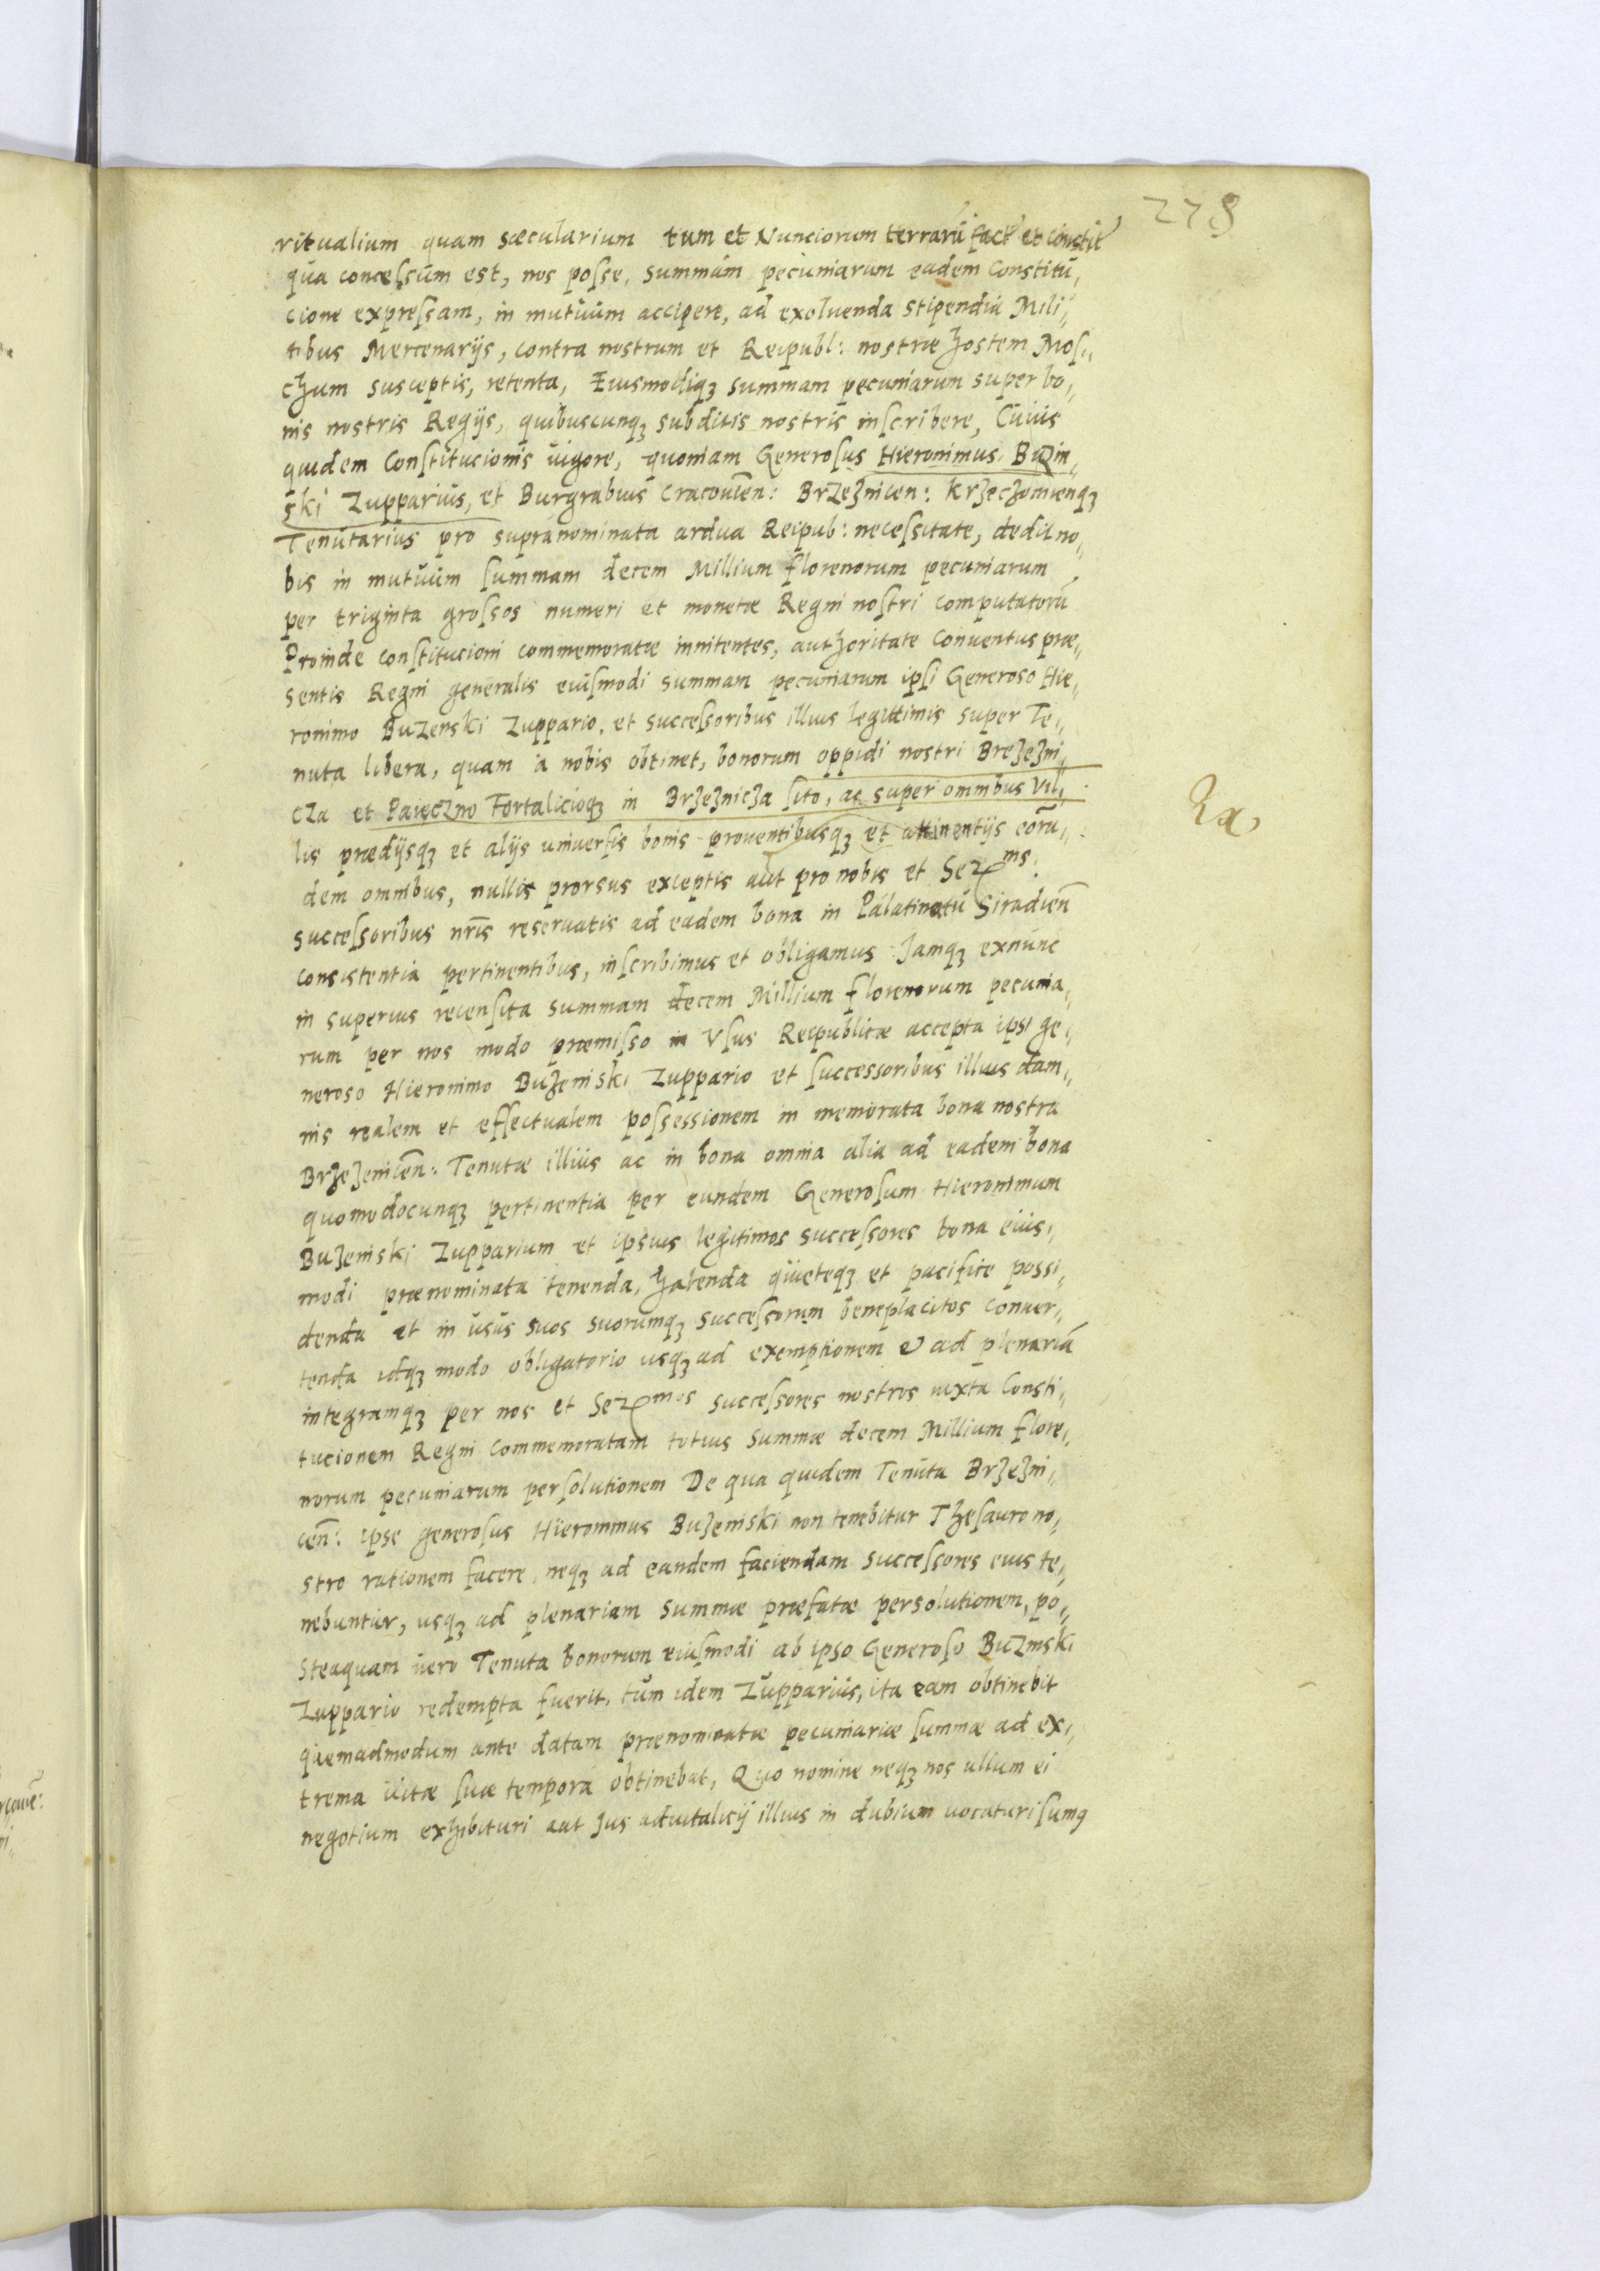 278
ritualium quam sæcularium tum et Nunciorum terrarū fact et constit
qua concessum est, nos posse, summam pecuniarum eadem Constitu,,
cione expressam, in mutuum accipere, ad exoluenda stipendia Mili,,
tibus Mercenarijs, contra nostrum et Reipubl: nostræ hostem Mos,,
chum susceptis, retenta, Eiusmodiqꝫ summam pecuniarum super bo,,
nis nostris Regijs, quibuscunqꝫ subditis nostris inscribere, Cuius
quidem Constitucionis uigore, quoniam Generosus Hieronimus Buzin,,
ski Zupparius, et Burgrabius Cracouien: Brzeznicen: Krzeczouienqꝫ
Tenutarius pro supranominata ardua Reipub: necessitate, dedit no,,
bis in mutuum summam decem Millium florenorum pecuniarum
per triginta grossos numeri et monetæ Regni nostri computatorū
Proinde constitucioni commemoratæ innitentes, authoritate Conuentus præ,,
sentis Regni generalis eiusmodi summam pecuniarum ipsi Generoso Hie,,
ronimo Buzenski Zuppario, et successoribus illius legittimis super Te,,
nuta libera, quam à nobis obtinet, bonorum oppidi nostri Brezezni,,
cza et Pauęczno Fortalicioqꝫ in Brzeznicza sito, ac super omnibus Vil,,
Za
lis prædijsqꝫ et alijs uniuersis bonis prouentibusqꝫ et attinentijs eorū,,
dem omnibus, nullis prorsus exceptis aut pro nobis et Serms:
successoribus nr̄is reseruatis ad eadem bona in Palatinatu Siradien̄
consistentia pertinentibus, inscribimus et obligamus Jamqꝫ exnunc
in superius recensita summam decem Millium florenorum pecunia,,
rum per nos modo præmisso in Vsus Reipublicæ accepta ipsi ge,,
neroso Hieronimo Buzenski Zuppario et successoribus illius dam,,
nis realem et effectualem possessionem in memorata bona nostra
Brzezenicen̄: Tenutæ illius ac in bona omnia alia ad eadem bona
quomodocunqꝫ pertinentia per eundem Generosum Hieronimum
Buzenski Zupparium et ipsius legitimos successores bona eius,,
modi prænominata tenenda, habenda quieteqꝫ et pacifice possi,,
denda et in usus suos suorumqꝫ successorum beneplacitos conuer,,
tenda idqꝫ modo obligatorio usqꝫ ad exemptionem & ad plenariā
integramqꝫ per nos et Sermos successores nostros iuxta Consti,,
tucionem Regni commemoratam totius summæ decem Millium flore,,
norum pecuniarum persolutionem De qua quidem Tenuta Brzezni,,
cen̄: ipse generosus Hieronimus Buzenski non tenebitur Thesauro no,,
stro rationem facere, neqꝫ ad eandem faciendam successores eius te,,
nebuntur, usqꝫ ad plenariam summæ præfatæ persolutionem, po,,
steaquam uero Tenuta bonorum eiusmodi ab ipso Generoso Buzinski
Zuppario redempta fuerit, tum idem Zupparius, ita eam obtinebit
quemadmodum ante datam prænominatæ pecuniariæ summæ ad ex,,
trema uitæ suæ tempora obtinebat, Quo nomine neqꝫ nos ullum ei
negotium exhibituri aut Jus aduitalicij illius in dubium uocaturi sumq